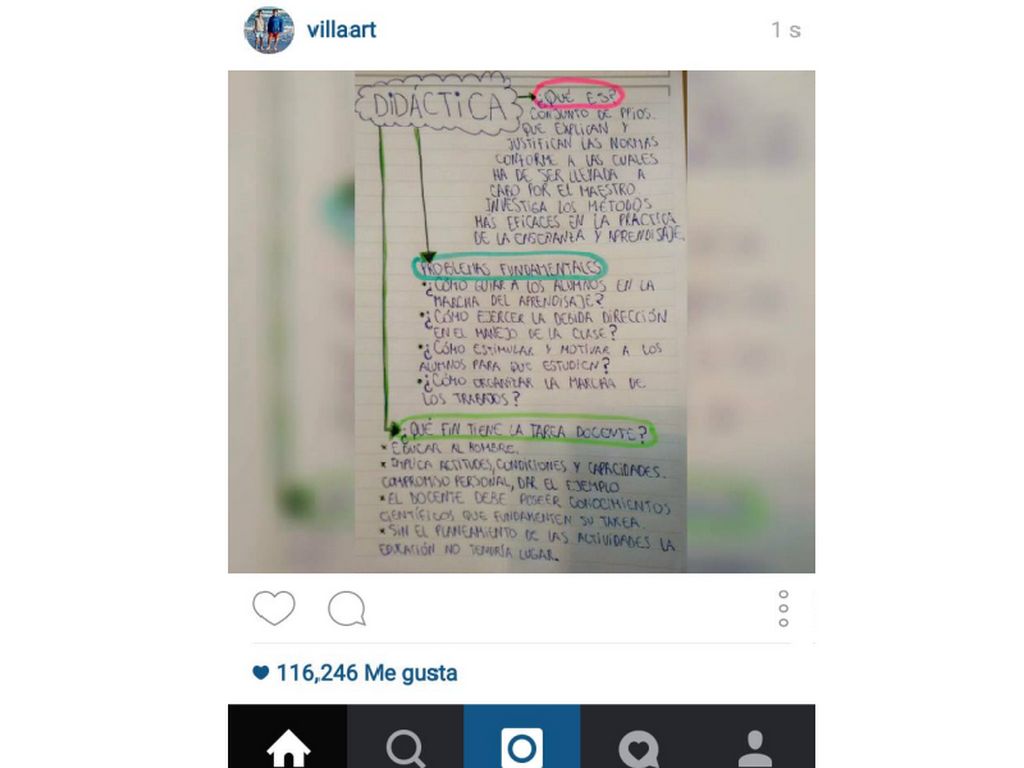 villaart
1 s
DIDÁCTICA
¿QUÉ ES?
CONJUNTO DE PPIOS.
QUE EXPLICAN Y
JUSTIFICAN LAS NORMAS
CONFORME A LAS CUALES
HA DE SER LLEVADA A
CABO POR EL MAESTRO.
INVESTIGA LOS MÉTODOS
MAS EFICACES EN LA PRÁCTICA
DE LA ENSEÑANZA Y APRENDISAJE.
PROBLEMAS FUNDAMENTALES
•¿CÓMO GUIAR A LOS ALUMNOS EN LA
MARCHA DEL APRENDISAJE?
•¿CÓMO EJERCER LA DEBIDA DIRECCIÓN
EN EL MANEJO DE LA CLASE?
•¿CÓMO ESTIMULAR Y MOTIVAR A LOS
ALUMNOS PARA QUE ESTUDIEN?
•¿CÓMO ORGANIZAR LA MARCHA DE
LOS TRABAJOS?
¿QUÉ FIN TIENE LA TAREA DOCENTE?
* EDUCAR AL HOMBRE.
* IMPLICA ACTITUDES, CONDICIONES Y CAPACIDADES.
COMPROMISO PERSONAL, DAR EL EJEMPLO
* EL DOCENTE DEBE POSEER CONOCIMIENTOS
CIENTÍFICOS QUE FUNDAMENTEN SU TAREA.
* SIN EL PLANEAMIENTO DE LAS ACTIVIDADES LA
EDUCACIÓN NO TENDRÍA LUGAR.
116,246 Me gusta